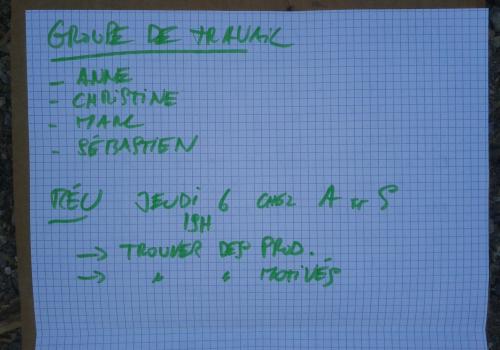 GROUPE DE TRAVAIL
- ANNE
- CHRISTINE
- MARC
- SÉBASTIEN
RÉU JEUDI 6 CHEZ A et S
19H
→ TROUVER DES PROD.
→ " " MOTIVÉS